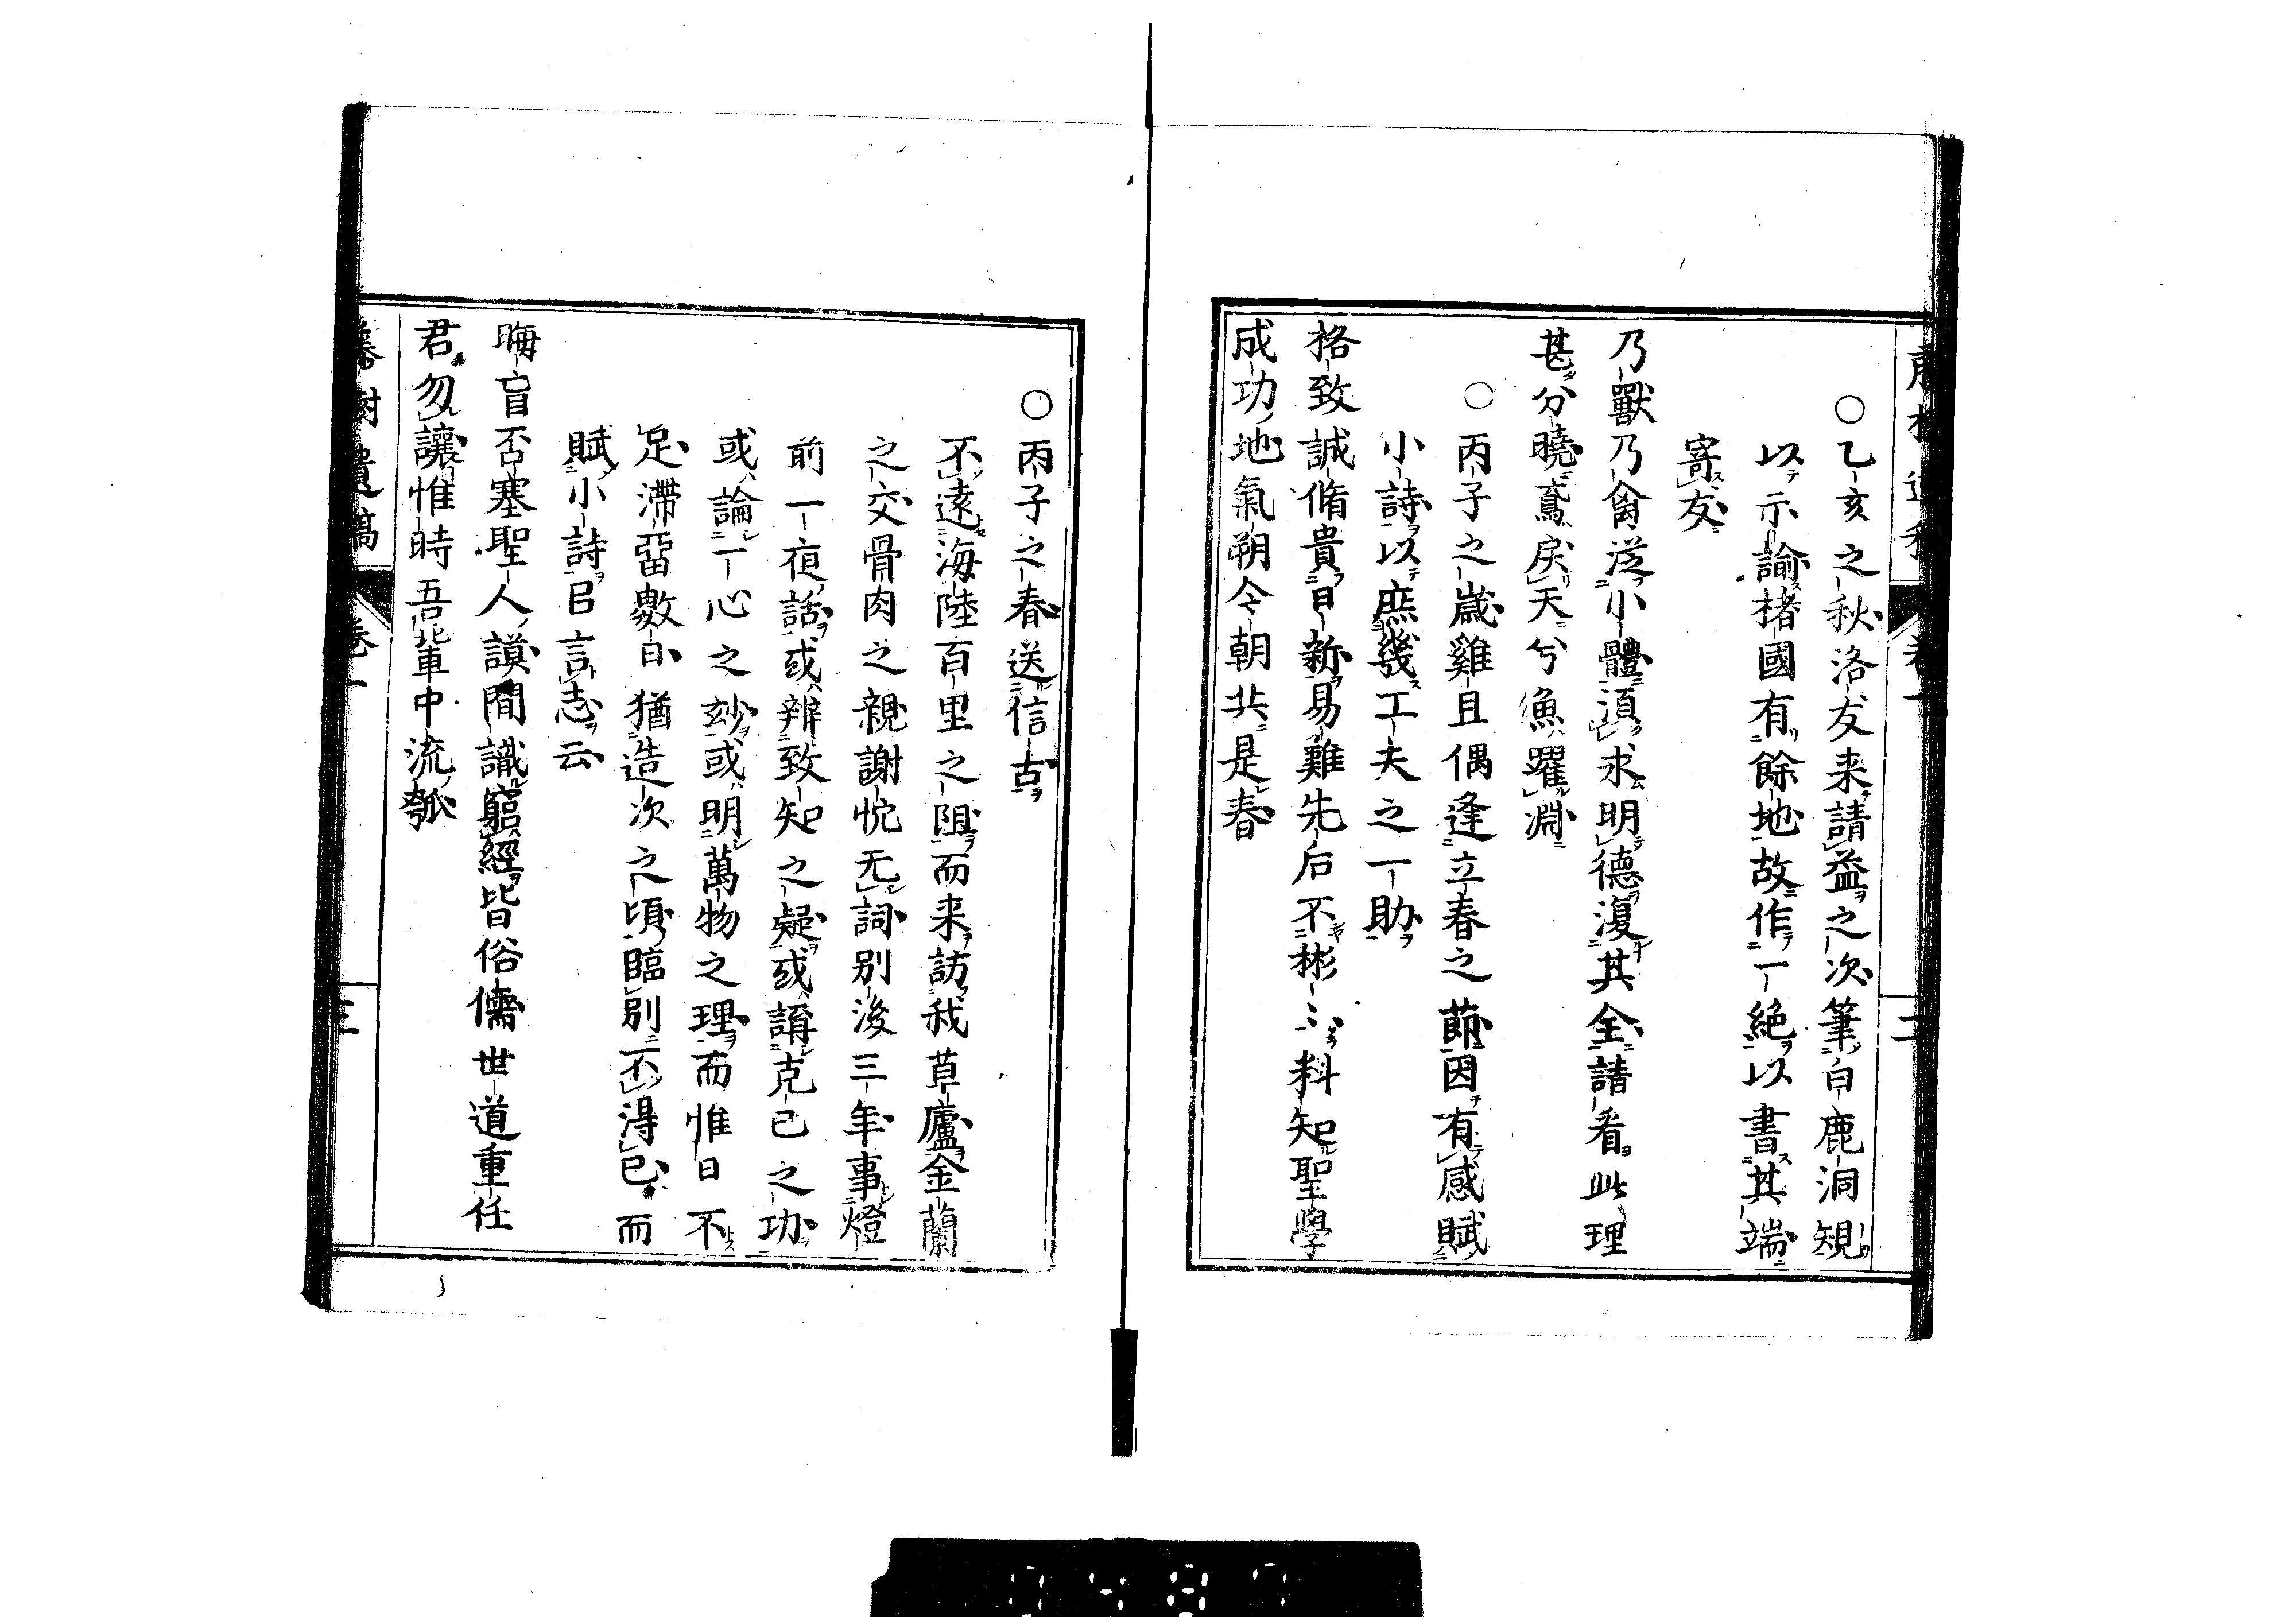 ○乙亥之秋洛友来請益之次筆白鹿洞規
以示論楮國有餘地故作一絶以書其端
寄友
乃獸乃禽泛小體須求明德復其全請看此理
甚分曉鳶戻天兮魚躍淵
○丙子之歳雞且偶逢立春之莭因有感賦
小詩以庶幾工夫之一助
格致誠脩貴日新易難先后不彬〻料知聖學
成功地氣朔令朝共是春
○丙子之春送信古
不遠海陸百里之阻而来訪我草廬金蘭
之交骨肉之親謝忱无詞別後三年事燈
前一夜話或辨致知之疑或講克己之功
或論一心之玅或明萬物之理而惟日不
足滯畱數日猶造次之頃臨別不得已而
賦小詩㠯言志云
晦盲否塞聖人謨間識窮經皆俗儒世道重任
君勿讓惟時吾軰中流瓠
藤樹遺稿 卷一 三